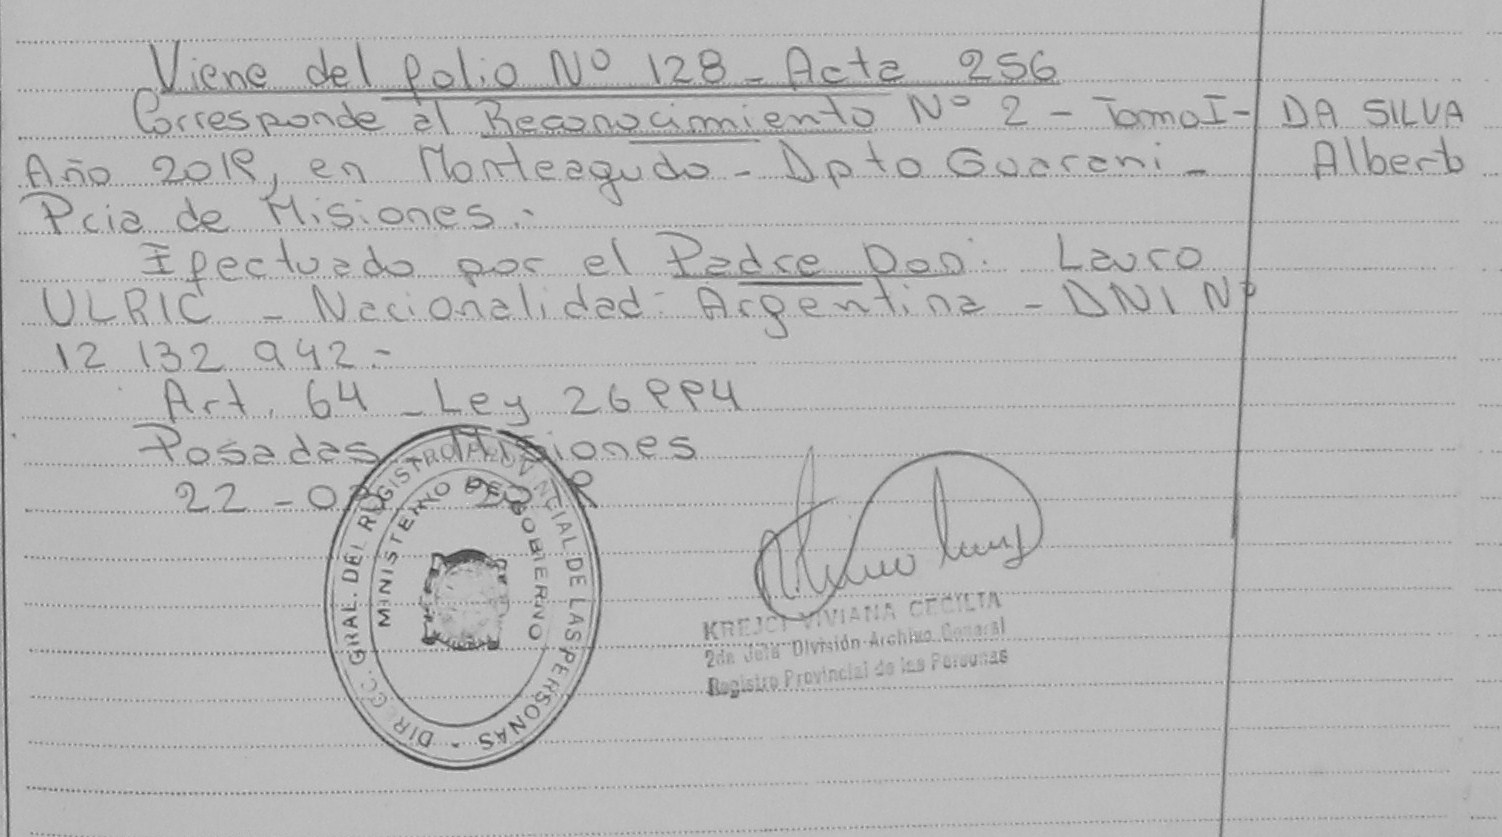 Viene del folio Nº 128 - Acta 256
Corresponde al Reconocimiento Nº 2 - Tomo I -
Año 2019, en Monteagudo - Dpto Guarani -
Pcia de Misiones.-
Efectuado por el Padre Don: Lauro
ULRIC - Nacionalidad: Argentina - DNI Nº
12 132 942.-
Art. 64 - Ley 26994
Posadas Misiones
22 - 0
DA SILVA
Alberto
DIRECC. GRAL. DEL REGISTRO PROVINCIAL DE LAS PERSONAS
MINISTERIO DE GOBIERNO
KREJCI VIVIANA CECILIA
2da Jefa División Archivo General
Registro Provincial de las Personas